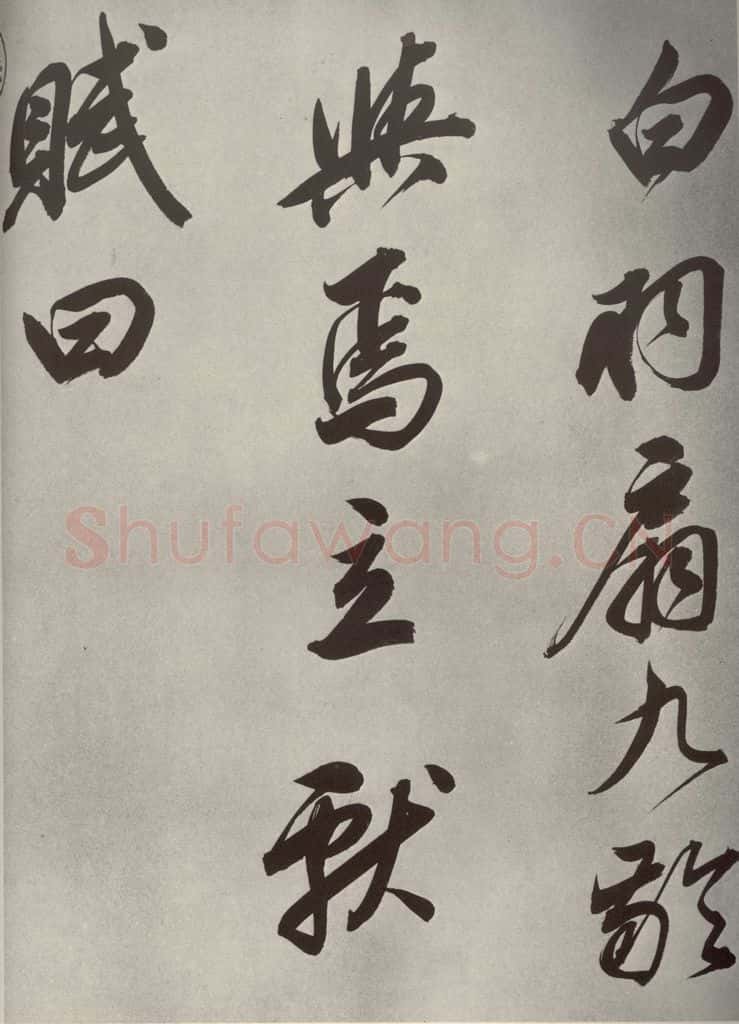 白羽扇九齡
與焉立獻
賦曰
Shufawang.CN